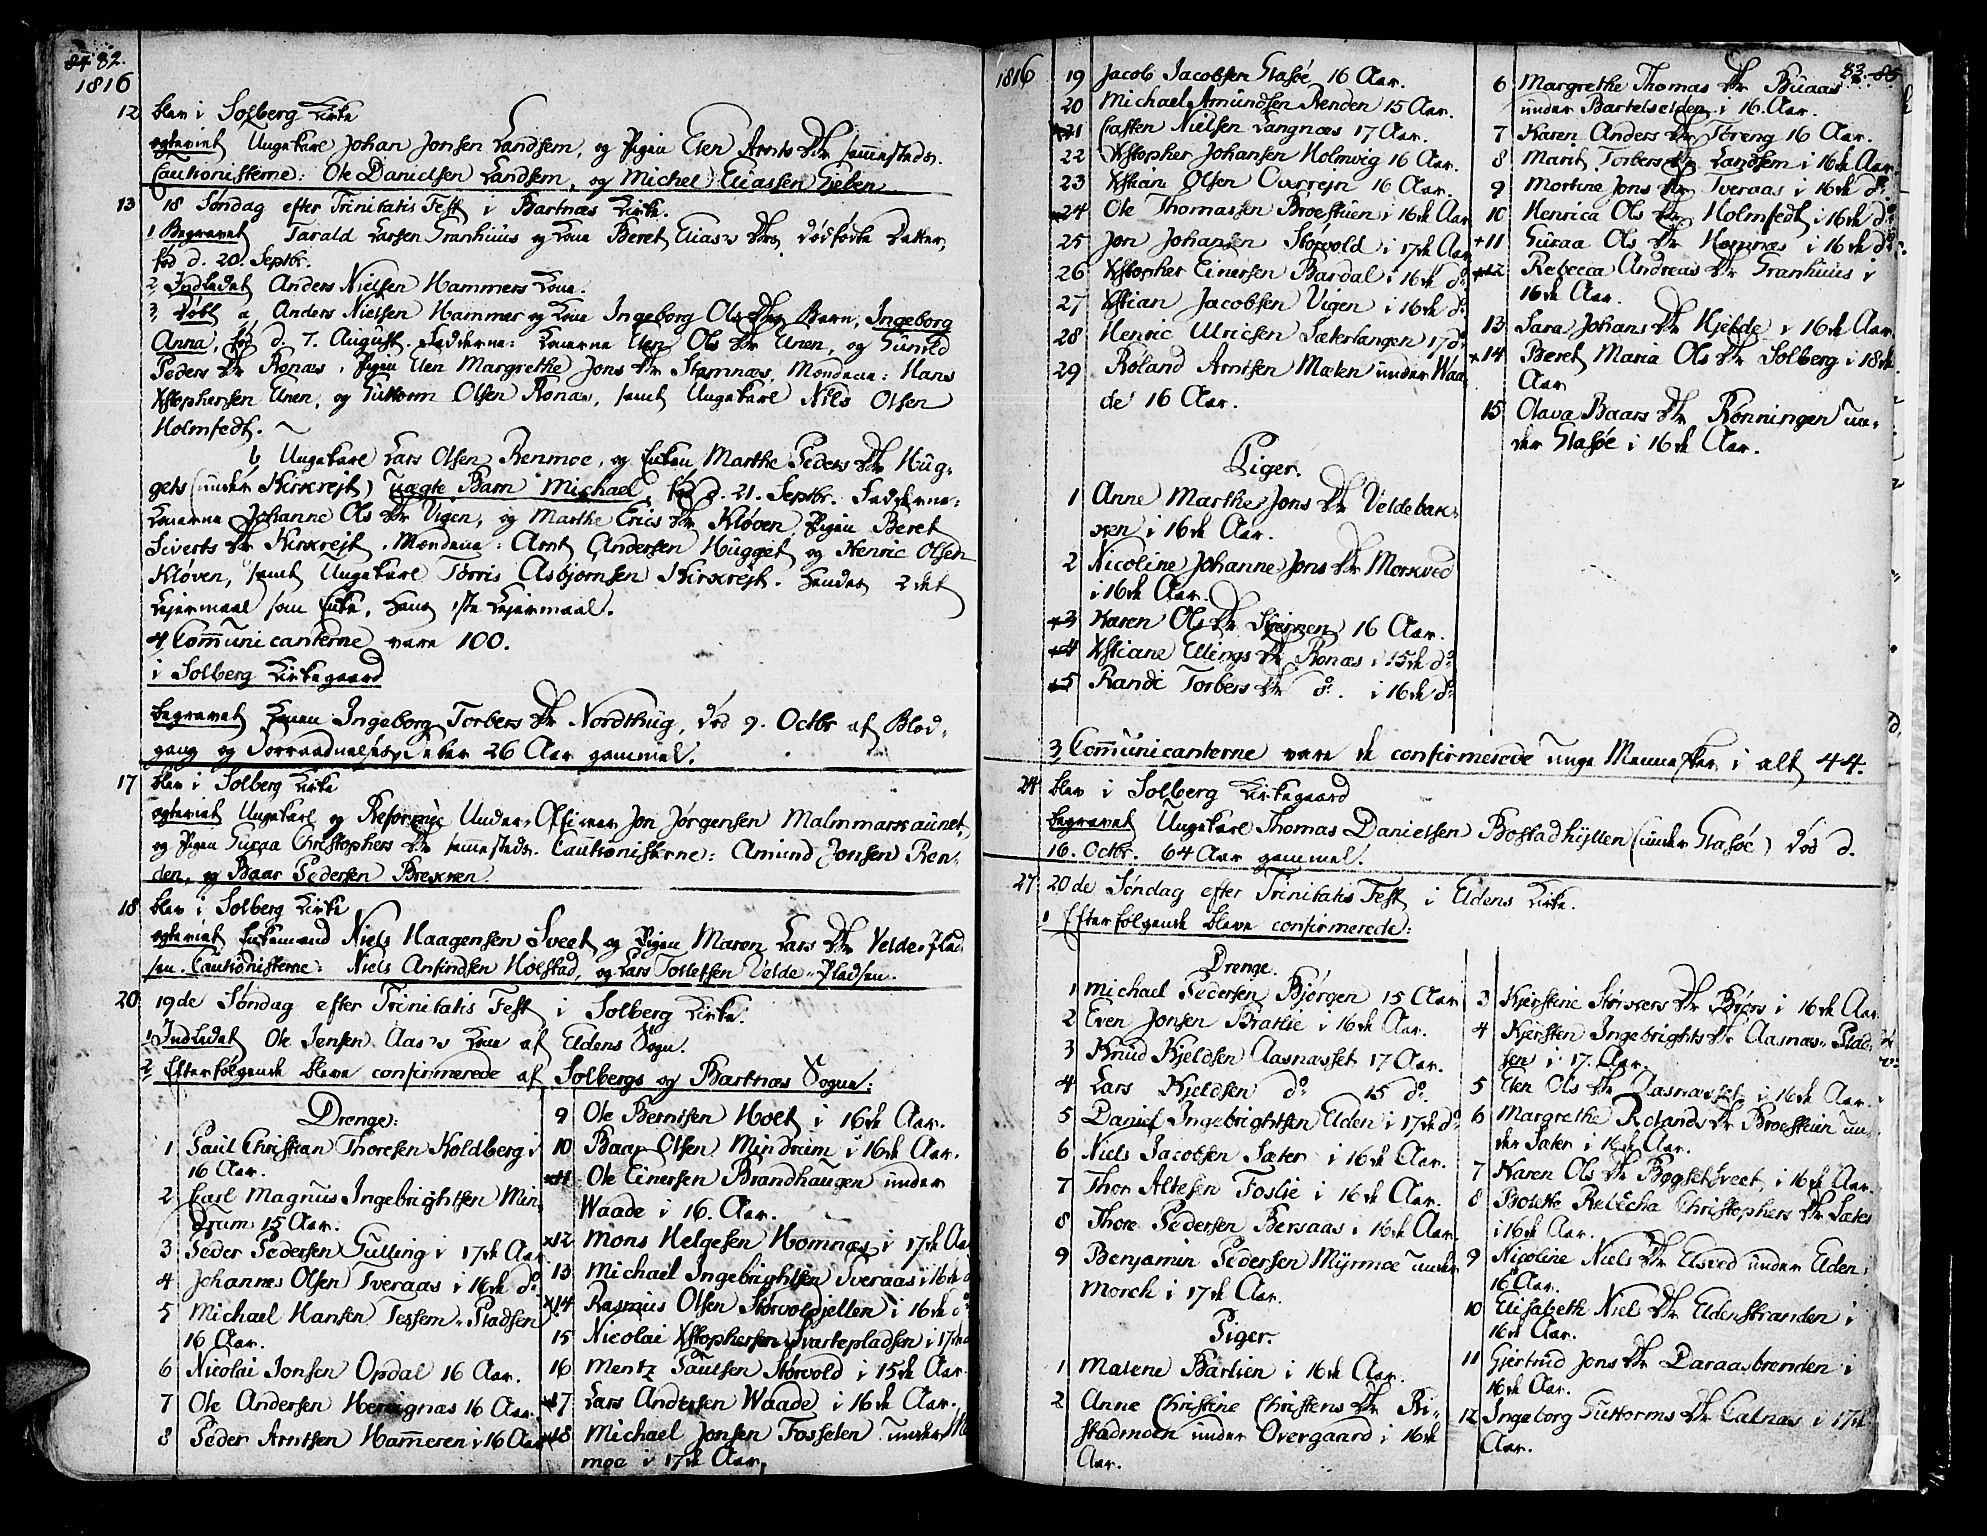 84 82.
1816
12 blev i Solberg Kirke
egteviet Ungekarl Johan Jonsen Landsem, og Pigen Elen Arnts Dtr sammesteds.
Cautionisterne: Ole Danielsen Landsem, og Michel Eliassen Gieben
13 18 Søndag efter Trinitatis Fest i Bartnæs Kirke.
1 Begravet Tarald Larsen Granhuus og Kone Beret Elias's Dtrs dødfødte Datter,
fød d. 20. Septbr.
2 Indledet Anders Nielsen Hammers Kone.
3, Døbt a, Anders Nielsen Hammer og Kone Ingeborg Ols Dtrs Barn, Ingeborg
Anna, fød d. 7. August. Fadderne: Konerne Elen Ols Dtr Unen, og Gunild
Peders Dtr Ronæs, Pigen Elen Margrethe Jons Dtr Stamnæs, Mændene: Hans
Xstophersen Unen, og Guttorm Olsen Ronæs, samt Ungekarl Nils Olsen
Holmfedt.
b, Ungekarl Lars Olsen Renmoe, og Enken Marthe Peders Dtr Hug-
gets (under Kirkrejt) uægte Barn Michael, fød d. 21. Septbr. Fadderne:
Konerne Johanne Ols Dtr Vigen, og Marthe Erics Dtr Kløven, Pigen Beret
Siverts Dtr Kirkrejt, Mændene: Arnt Andersen Hugget og Henric Olsen
Kløven, samt Ungekarl Tørris Asbjørnsen Kirkrejt. Hendes 2det
Lejermaal som Enke, hans 1ste Lejermaal.
4 Communicanterne vare 100.
i Solberg Kirkegaard
begravet Konen Ingeborg Torbers Dtr Nordthug, død 9. Octbr af Blod-
gang og Forraadnelses 26 Aar gammel.
17 blev i Solberg Kirke
egteviet Ungekarl og Reformee Under-Officeer Jon Jørgensen Malmmarkaunet,
og Pigen Guraa Christophers Dtr sammesteds. Cautionisterne: Amund Jonsen Ren-
den, og Baar Pedersen Brekken.
18 blev i Solberg Kirke
egteviet Enkemand Niels Haagensen Sveet og Pigen Maren Lars Dtr Velde-Plad-
sen. Cautionisterne: Niels Arfindsen Holstad, og Lars Tollefsen Velde-Pladsen.
20 19de Søndag efter Trinitatis Fest i Solberg Kirke.
1 Indledet Ole Jensen Aas's Kone af Eldens Sogn.
2 Efterfølgende bleve confirmerede af Solbergs og Bartnæs Sogne:
Drenge:
1 Paul Christian Thoresen Koldberg i
16 Aar.
2 Carl Magnus Ingebrightsen Min-
drum 15 Aar.
3 Peder Pedersen Gulling i 17de Aar
4 Johannes Olsen Tveraas i 16de do
5 Michael Hansen Tessem-Pladsen
16 Aar.
6 Nicolai Jonsen Opdal 16 Aar.
7 Ole Andersen Hervignæs 16 Aar.
8 Peder Arntsen Hammeren i 16 Aar
9 Ole Berntsen Hoel i 16de Aar.
10 Baar Olsen Mindrum i 16de Aar.
x11 Ole Einersen Brandhaugen under
Waade i 16. Aar.
x12 Mons Helgesen Homnæs i 17de Aar
13 Michael Ingebrightsen Tveraas i 16de d
x14 Rasmus Olsen Størvoldjellen i 16de do
15 Nicolai Xstophersen Svartepladsen i 17de
16 Mentz Paulsen Størvold i 15de Aar
x17 Lars Andersen Waade i 16de Aar.
x18 Michael Jonsen Fosselen under
moe i 17de Aar.
1816
83. 85
19 Jacob Jacobsen Stasøe 16 Aar.
20 Michael Amundsen Renden 15 Aar.
x21 Casten Nielsen Langnæs 17 Aar.
22 Xstopher Johansen Holmvig 16 Aar.
23 Xstian Olsen Overrejn 16 Aar.
x24 Ole Thomassen Broestuen i 16de Aar
25 Jon Johansen Störvold i 17de Aar
26 Xstopher Einersen Bardal i 16de do
27 Xstian Jacobsen Vigen i 16de do
28 Henric Ulricsen Sæterlangen 17 do
29 Roland Arntsen Mælen under Waa
de 16 Aar.
Piger.
1 Anne Marthe Jons Dtr Veldebak-
ken i 16de Aar.
2 Nicoline Johanne Jons Dtr Morkved
i 16de Aar.
x3 Karen Ols Dtr Stjernen 16 Aar.
x4 Xstiane Ellings Dtr Ronæs i 15de do
x5 Randi Torbers Dtr do. i 16de do
6 Margrethe Thomas Dtr Buaas
under Bartelselden i 16. Aar.
7 Karen Anders Dtr Toreng 16 Aar.
8 Marit Torbers Dtr Landsem i 16de Aar
9 Mortine Jons Dtr Tveraas i 16de do
10 Henrica Ols Dtr Holmfedt i 16de do
+11 Guraa Ols Dtr Homnæs i 16de do
x12 Rebecca Andreas Dtr Granhuus i
16de Aar.
13 Sara Johans Dtr Kjelde i 16de Aar.
x14 Beret Maria Ols Dtr Solberg i 18de
Aar
15 Olava Baars Dtr Rønningen un-
der Stasøe i 16de Aar.
3, Communicanterne vare de confirmerede unge Mennesker, i alt 44.
24 blev i Solberg Kirkegaard
begravet Ungekarl Thomas Danielsen Bostadhyllen (under Stasøe) død d.
16. Octbr. 64 Aar gammel.
27 20de Søndag efter Trinitatis Fest i Eldens Kirke.
1 Efterfølgende bleve confirmerede:
Drenge.
1 Michael Pedersen Bjørgen 15 Aar
2 Even Jonsen Bratlie i 16de Aar.
3 Knud Kjeldsen Aasnæsset 17 Aar.
4 Lars Kjeldsen do 15 do.
5 Daniel Ingebrightsen Elden i 17de do
6 Niels Jacobsen Sæter i 16de Aar.
7 Thor Altesen Foslie i 16de Aar.
8 Thore Pedersen Bersaas i 16de Aar.
9 Benjamin Pedersen Myrmoe under
Morch i 17de Aar.
Piger.
1 Malene Barlien i 16de Aar.
2 Anne Christine Christens Dtr Ri-
stadmoen under Overgaard i 16de
Aar.
3 Kjerstine Størkers Dtr Bjørs i 16de Aar
4 Kjersten Ingebrights Dtr Aasnæs-Plad-
sen i 17. Aar.
5 Elen Ols Dtr Aasnæsset i 16de Aar.
6 Margrethe Rolands Dtr Broestuen un-
der Sæter i 16de Aar.
7 Karen Ols Dtr Bøgsetsveet i 16de Aar.
8 Bolette Rebecha Christophers Dtr Sæter
i 16de Aar.
9 Nicoline Niels Dtr Elsved under Elden i
16 Aar.
10 Elisabeth Niels Dtr Eldenstranden i
16de Aar.
11 Gjertrud Jons Dtr Daraasbrenden i
16de Aar.
12 Ingeborg Guttorms Dtr Calnæs i 17de
Aar.